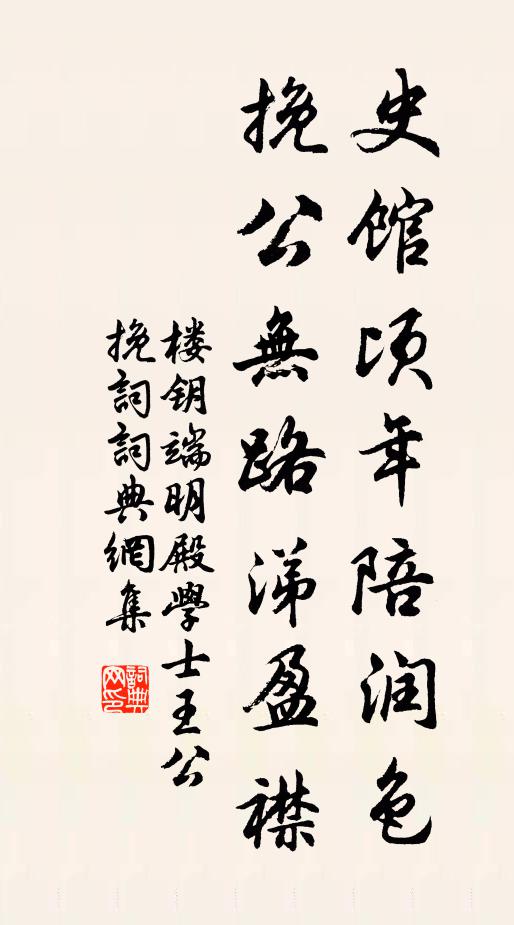 史馆顷年陪润色
挽公無路涕盈襟
楼钥端明殿學士王公
挽詞詞典網集
詞典网印